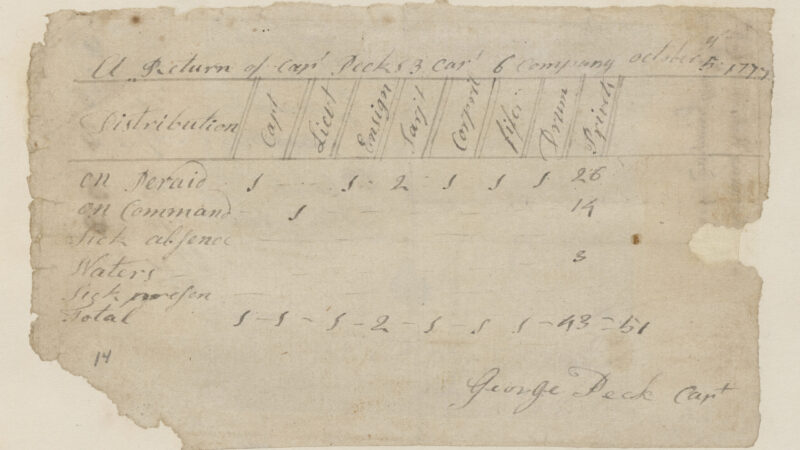 A Return of Capt Pecks 3 Cart 6 Company october ye 5: 1777
Distribution Capt Lieut Ensign Sarjt Corprol fife Drum Privets
on Peraid 1 1 2 1 1 1 26
on Command 1 14
Sick absence
Waters 3
Sick presen
Total 1 - 1 - 1 - 2 - 1 - 1 1 - 43 = 51
14
George Peck Capt